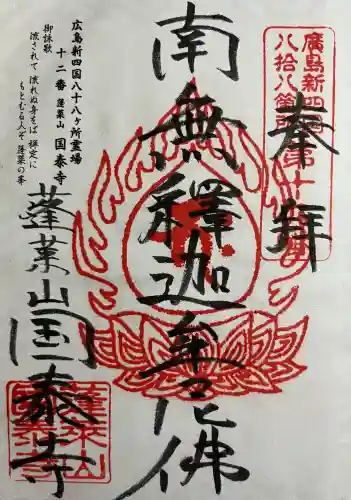 奉拝
廣島新四国
八拾八箇所
第十二番
南無釋迦牟尼佛
蓬莱山国泰寺
広島新四国八十八ヶ所霊場
十二番 蓬莱山 国泰寺
御詠歌
流されて 流れぬ身をば 禅定に
もとむる人ぞ 蓬莱の峯
蓬莱山
国泰寺